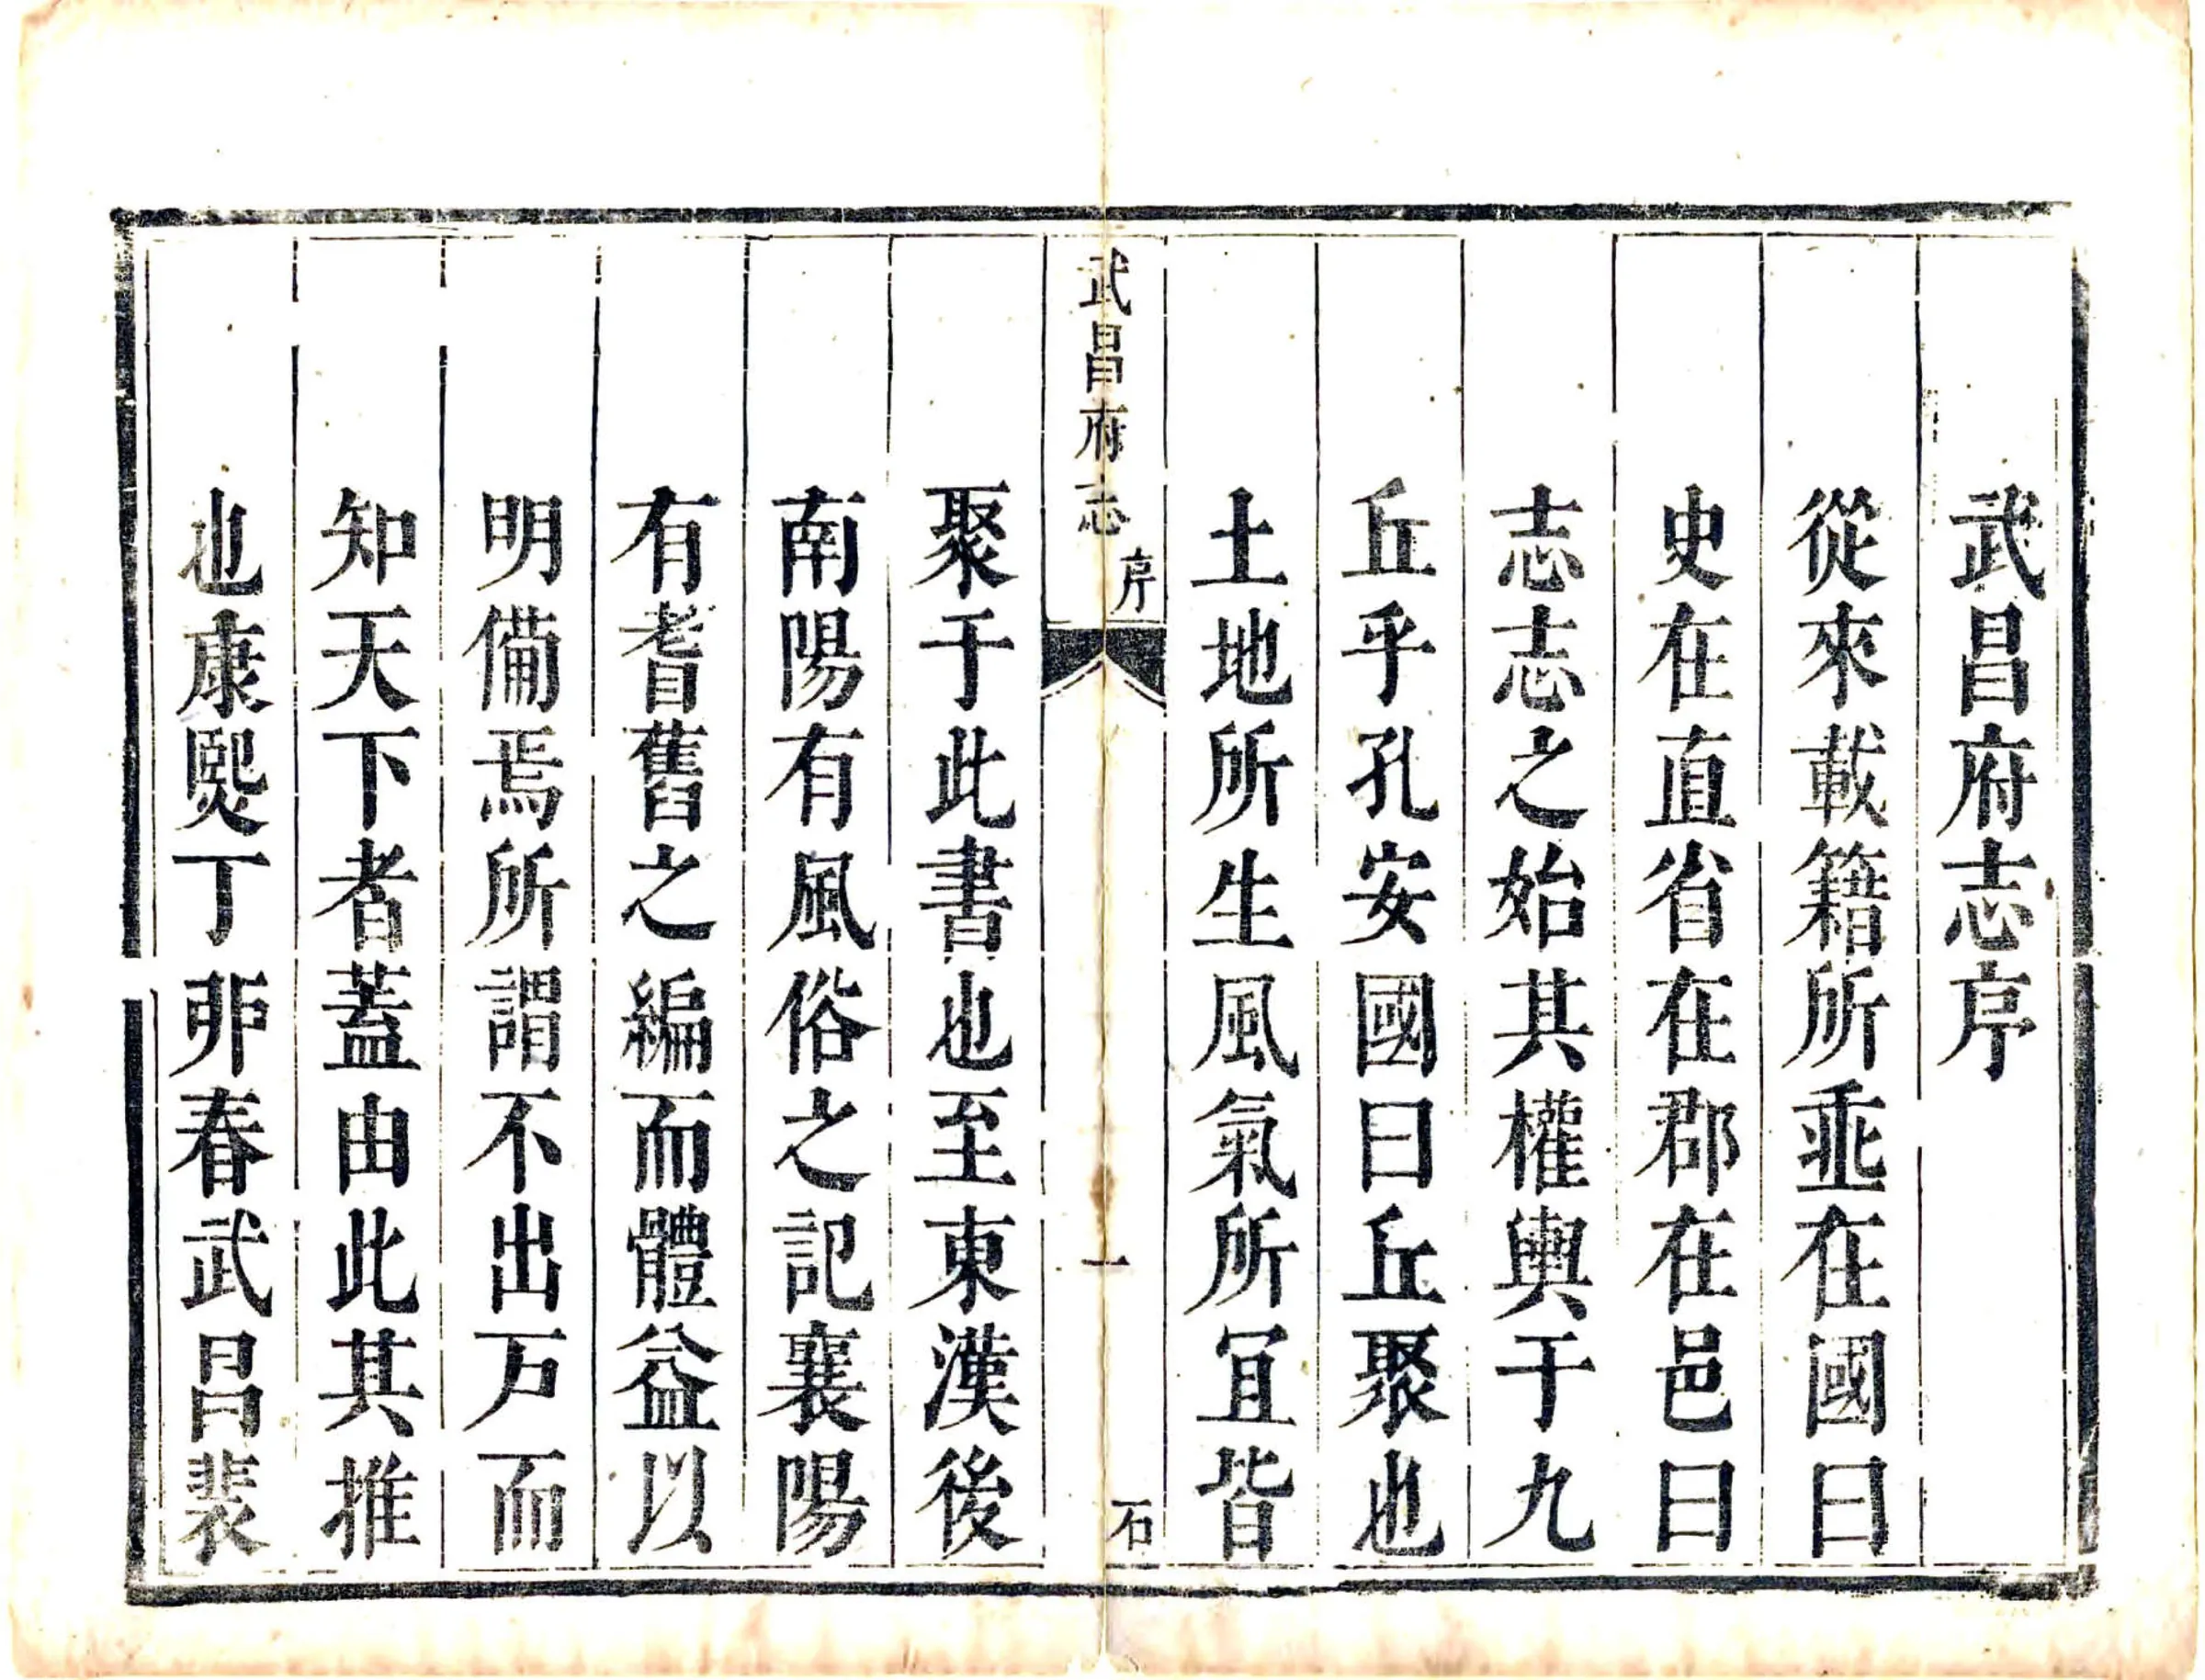 武昌府志序
從來載籍所垂在國曰
史在直省在郡在邑曰
志志之始其權輿于九
丘乎孔安國曰丘聚也
土地所生風氣所宜皆
武昌府志 序 一 石
聚于此書也至東漢後
南陽有風俗之記襄陽
有耆舊之編而體益以
明備焉所謂不出戶而
知天下者蓋由此其推
也康熙丁卯春武昌裴